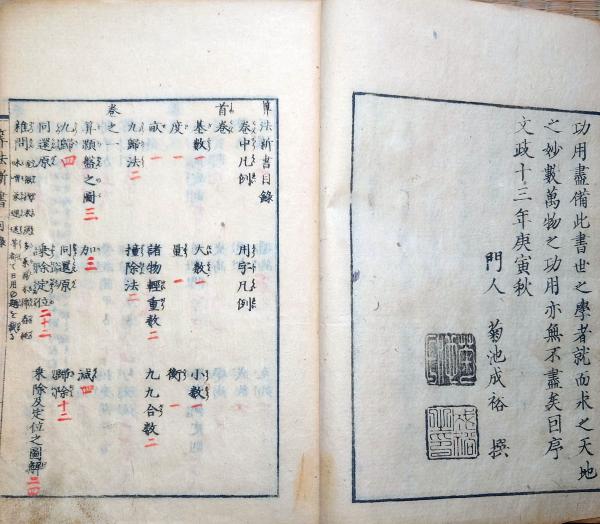 功用盡備此書世之學者就而求之天地
之妙數萬物之功用亦無不盡矣因序
文政十三年庚寅秋
門人 菊池成裕 撰
算法新書目錄
首巻
巻中凡例 用字凡例
基数一 大数一 小数一
度一 量一 衡一
畝一 諸物輕重数二 九九合数二
九歸法二 撞除法二
巻之一
算顆盤之圖三 加三 減四
九歸四 同還原 歸除十二
同還原 乗除定位二十二 乗除及定位之圖解二四
雜問
算法新書 目錄